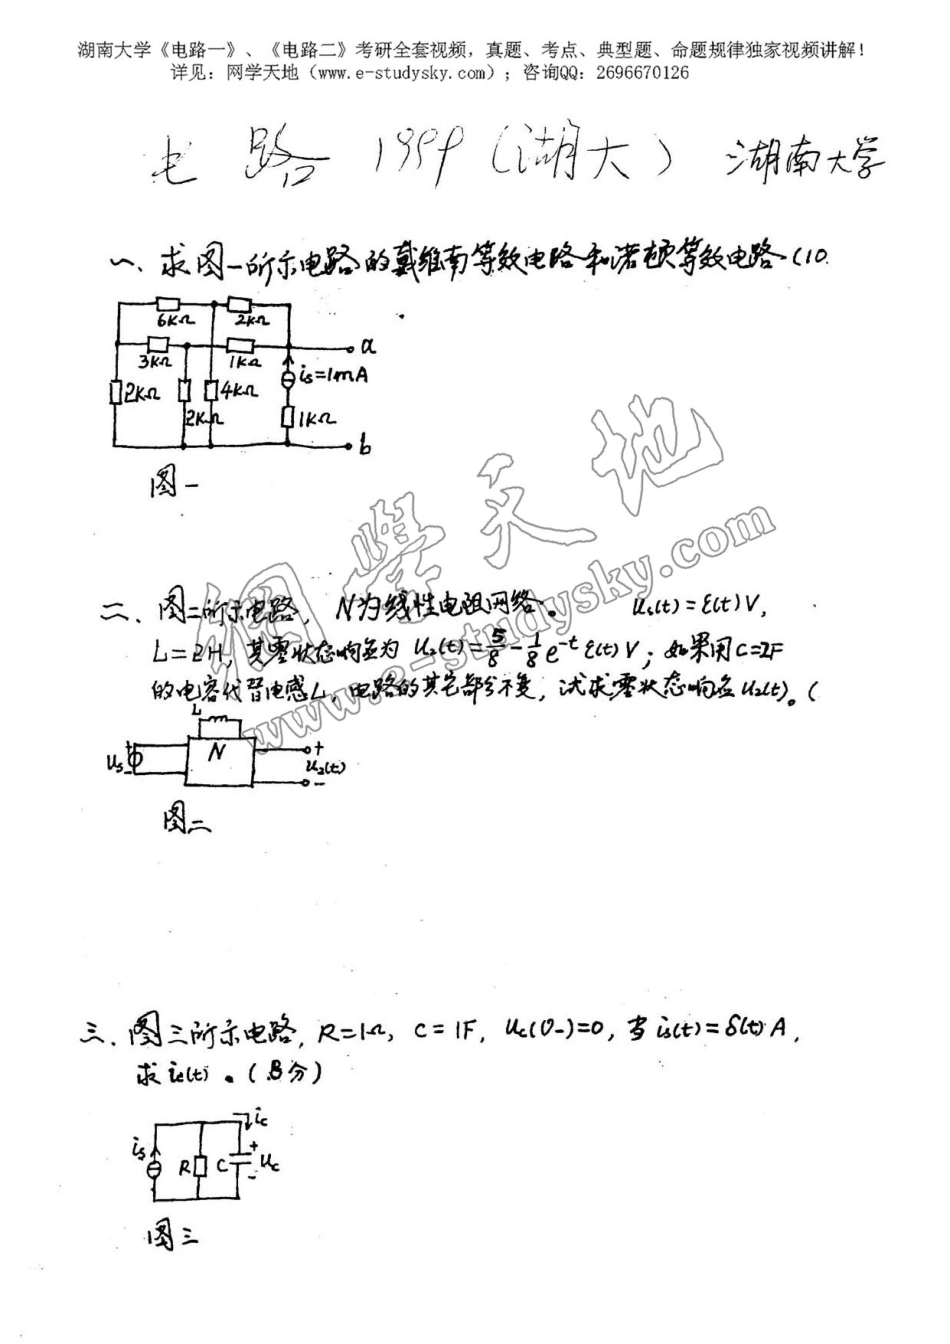 湖南大学《电路一》、《电路二》考研全套视频，真题、考点、典型题、命题规律独家视频讲解！
详见：网学天地（www.e-studysky.com）；咨询QQ：2696670126
电 路 1999（湖大） 湖南大学
一、求图一所示电路的戴维南等效电路和诺顿等效电路（10.
6KΩ 2KΩ
a
3KΩ 1KΩ
is=1mA
2KΩ 2KΩ 4KΩ
1KΩ
b
图一
網學天地
www.e-studysky.com
二、图二所示电路，N为线性电阻网络。 us(t)=ε(t)V，
L=2H，其零状态响应为 u2(t)=5/8-1/8e-t ε(t)V；如果用C=2F
的电容代替电感L，电路的其它部分不变，试求零状态响应u2(t)。（
L
N
+
Us
+
-
u2(t)
-
图二
三、图三所示电路，R=1Ω，C=1F，uc(0-)=0，当is(t)=δ(t)A，
求ic(t)。（8分）
ic
is
R
C
+
uc
-
图三